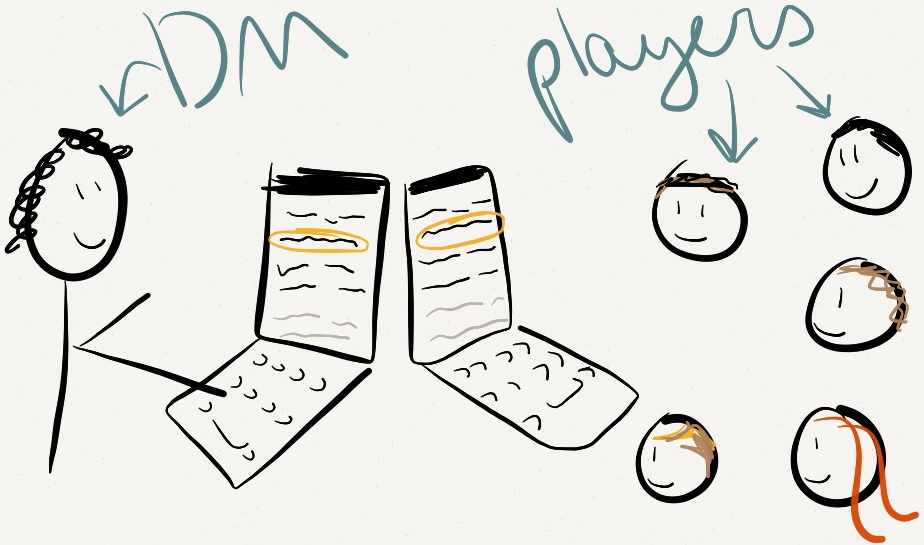 DM
players